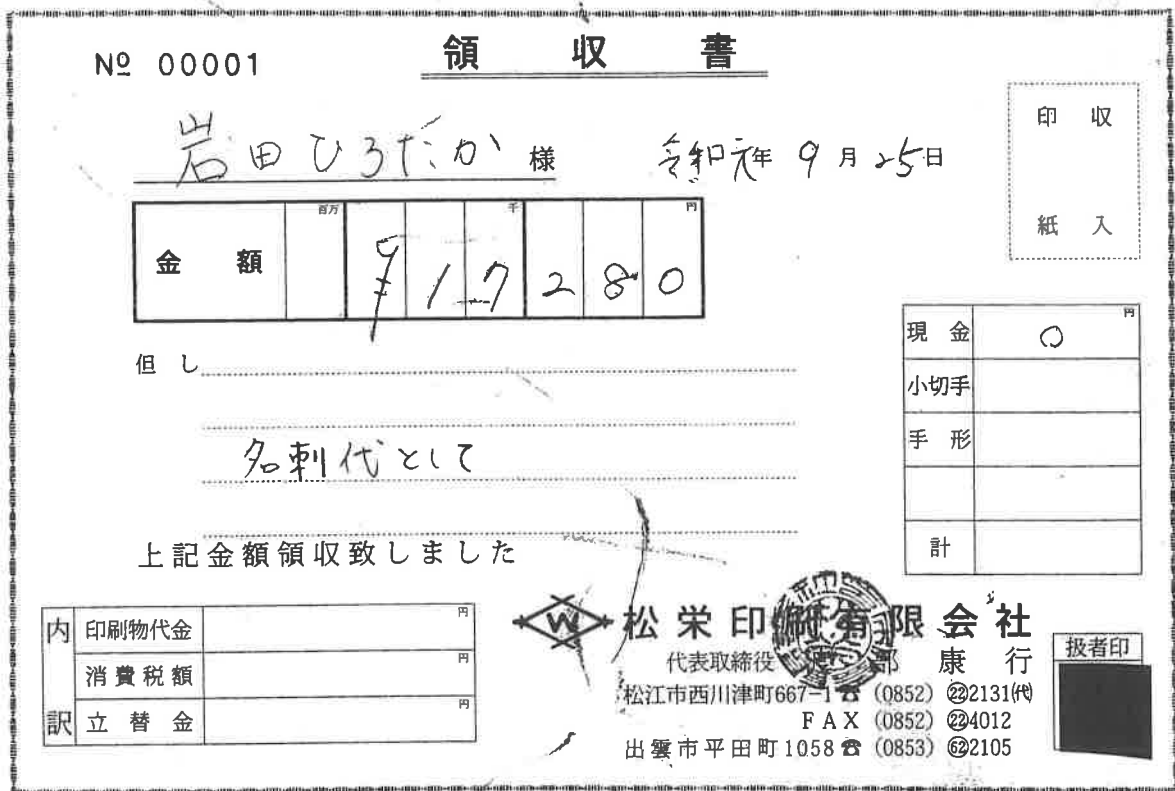 № 00001
領収書
岩田ひろたか 様
令和元年 9月25日
収入
印紙
金額
百万 千 円
¥17280
但し
名刺代として
上記金額領収致しました
現金 ○ 円
小切手
手形
計
内訳
印刷物代金 円
消費税額 円
立替金 円
W 松栄印刷有限会社
代表取締役 部康行
松江市西川津町667-1 ☎ (0852) ㉒2131㈹
FAX (0852) ㉒4012
出雲市平田町1058 ☎ (0853) 622105
扱者印